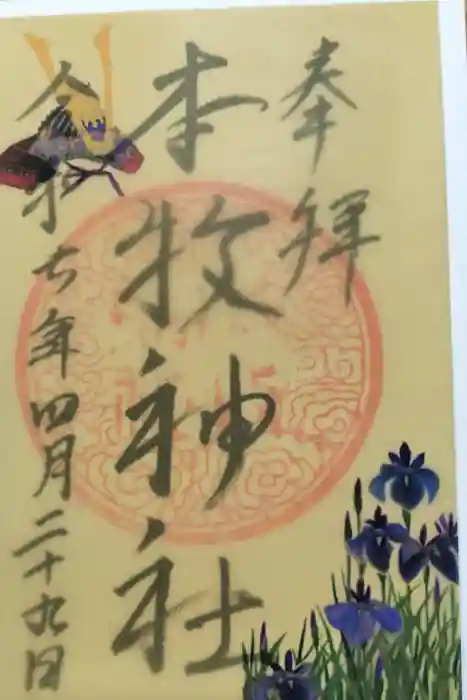 奉拝
本牧神社
令和七年四月二十九日